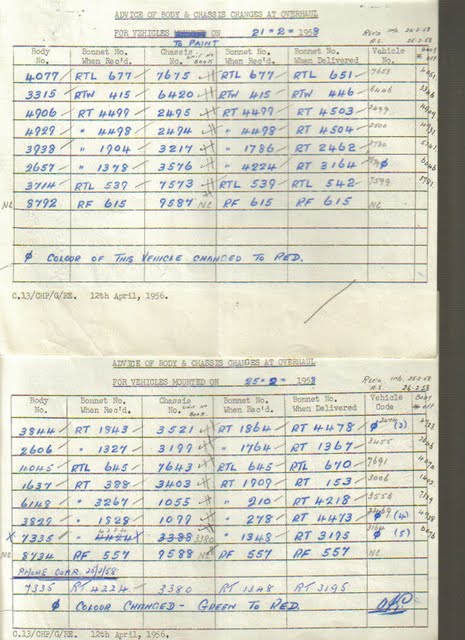 ADVICE OF BODY & CHASSIS CHANGES AT OVERHAUL
FOR VEHICLES ON 21=2= 1958
TO PAINT
Body No. Bonnet No. When Rec'd. Chassis No. Bonnet No. When Rec'd. Bonnet No. When Delivered Vehicle No.
4077 RTL 677 7675 RTL 677 RTL 651 7653
3315 RTW 415 6420 RTW 415 RTW 446 6446
4906 RT 4499 2495 RT 4499 RT 4503 2499
4929 " 4498 2494 " 4498 RT 4504 2500
3938 " 1904 3217 " 1786 RT 2462
2657 " 1378 3576 " 4224 RT 3164 ϕ
3714 RTL 539 7573 RTL 539 RTL 542 7599
NC 8792 RF 615 9587 NC RF 615 RF 615 NC
ϕ COLOUR OF THIS VEHICLE CHANGED TO RED.
C.13/CHP/G/RE. 12th April, 1956.
ADVICE OF BODY & CHASSIS CHANGES AT OVERHAUL
FOR VEHICLES MOUNTED ON 25=2= 1958
Body No. Bonnet No. When Rec'd. Chassis No. Bonnet No. When Rec'd. Bonnet No. When Delivered Vehicle Code
3844 RT 1843 3521 RT 1864 RT 4478 ϕ (3)
2606 " 1327 3199 " 1764 RT 1367 3455
4045 RTL 645 7643 RTL 645 RTL 670 7691
1637 RT 388 3403 RT 1909 RT 153 3006
6148 " 3267 1055 " 210 RT 4218 3556
3829 " 1828 1099 " 278 RT 4473 ϕ (4)
X 7335 " 4424 X 3388 3380 " 1348 RT 3195 ϕ (5)
NC 8734 RF 557 9588 NC RF 557 RF 557 NC
PHONE COAR. 25/2/58
7335 RT 4224 3380 RT 1348 RT 3195
ϕ COLOUR CHANGED - GREEN TO RED.
C.13/CHP/G/RE. 12th April, 1956.